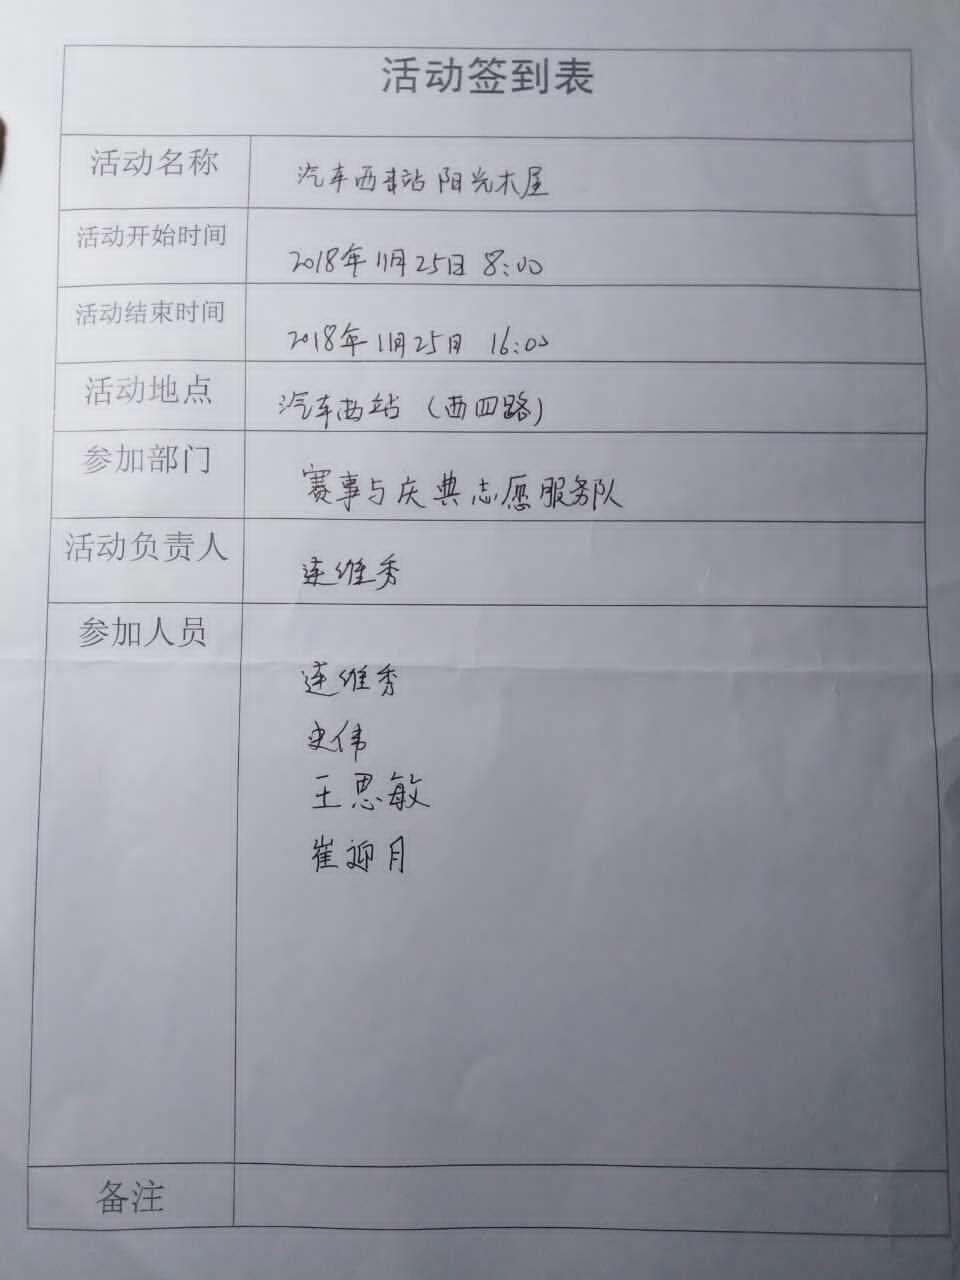 活动签到表
活动名称 汽车西车站阳光木屋
活动开始时间 2018年11月25日 8:00
活动结束时间 2018年11月25日 16:00
活动地点 汽车西站（西四路）
参加部门 赛事与庆典志愿服务队
活动负责人 连维秀
参加人员
连维秀
史伟
王思敏
崔迎月
备注